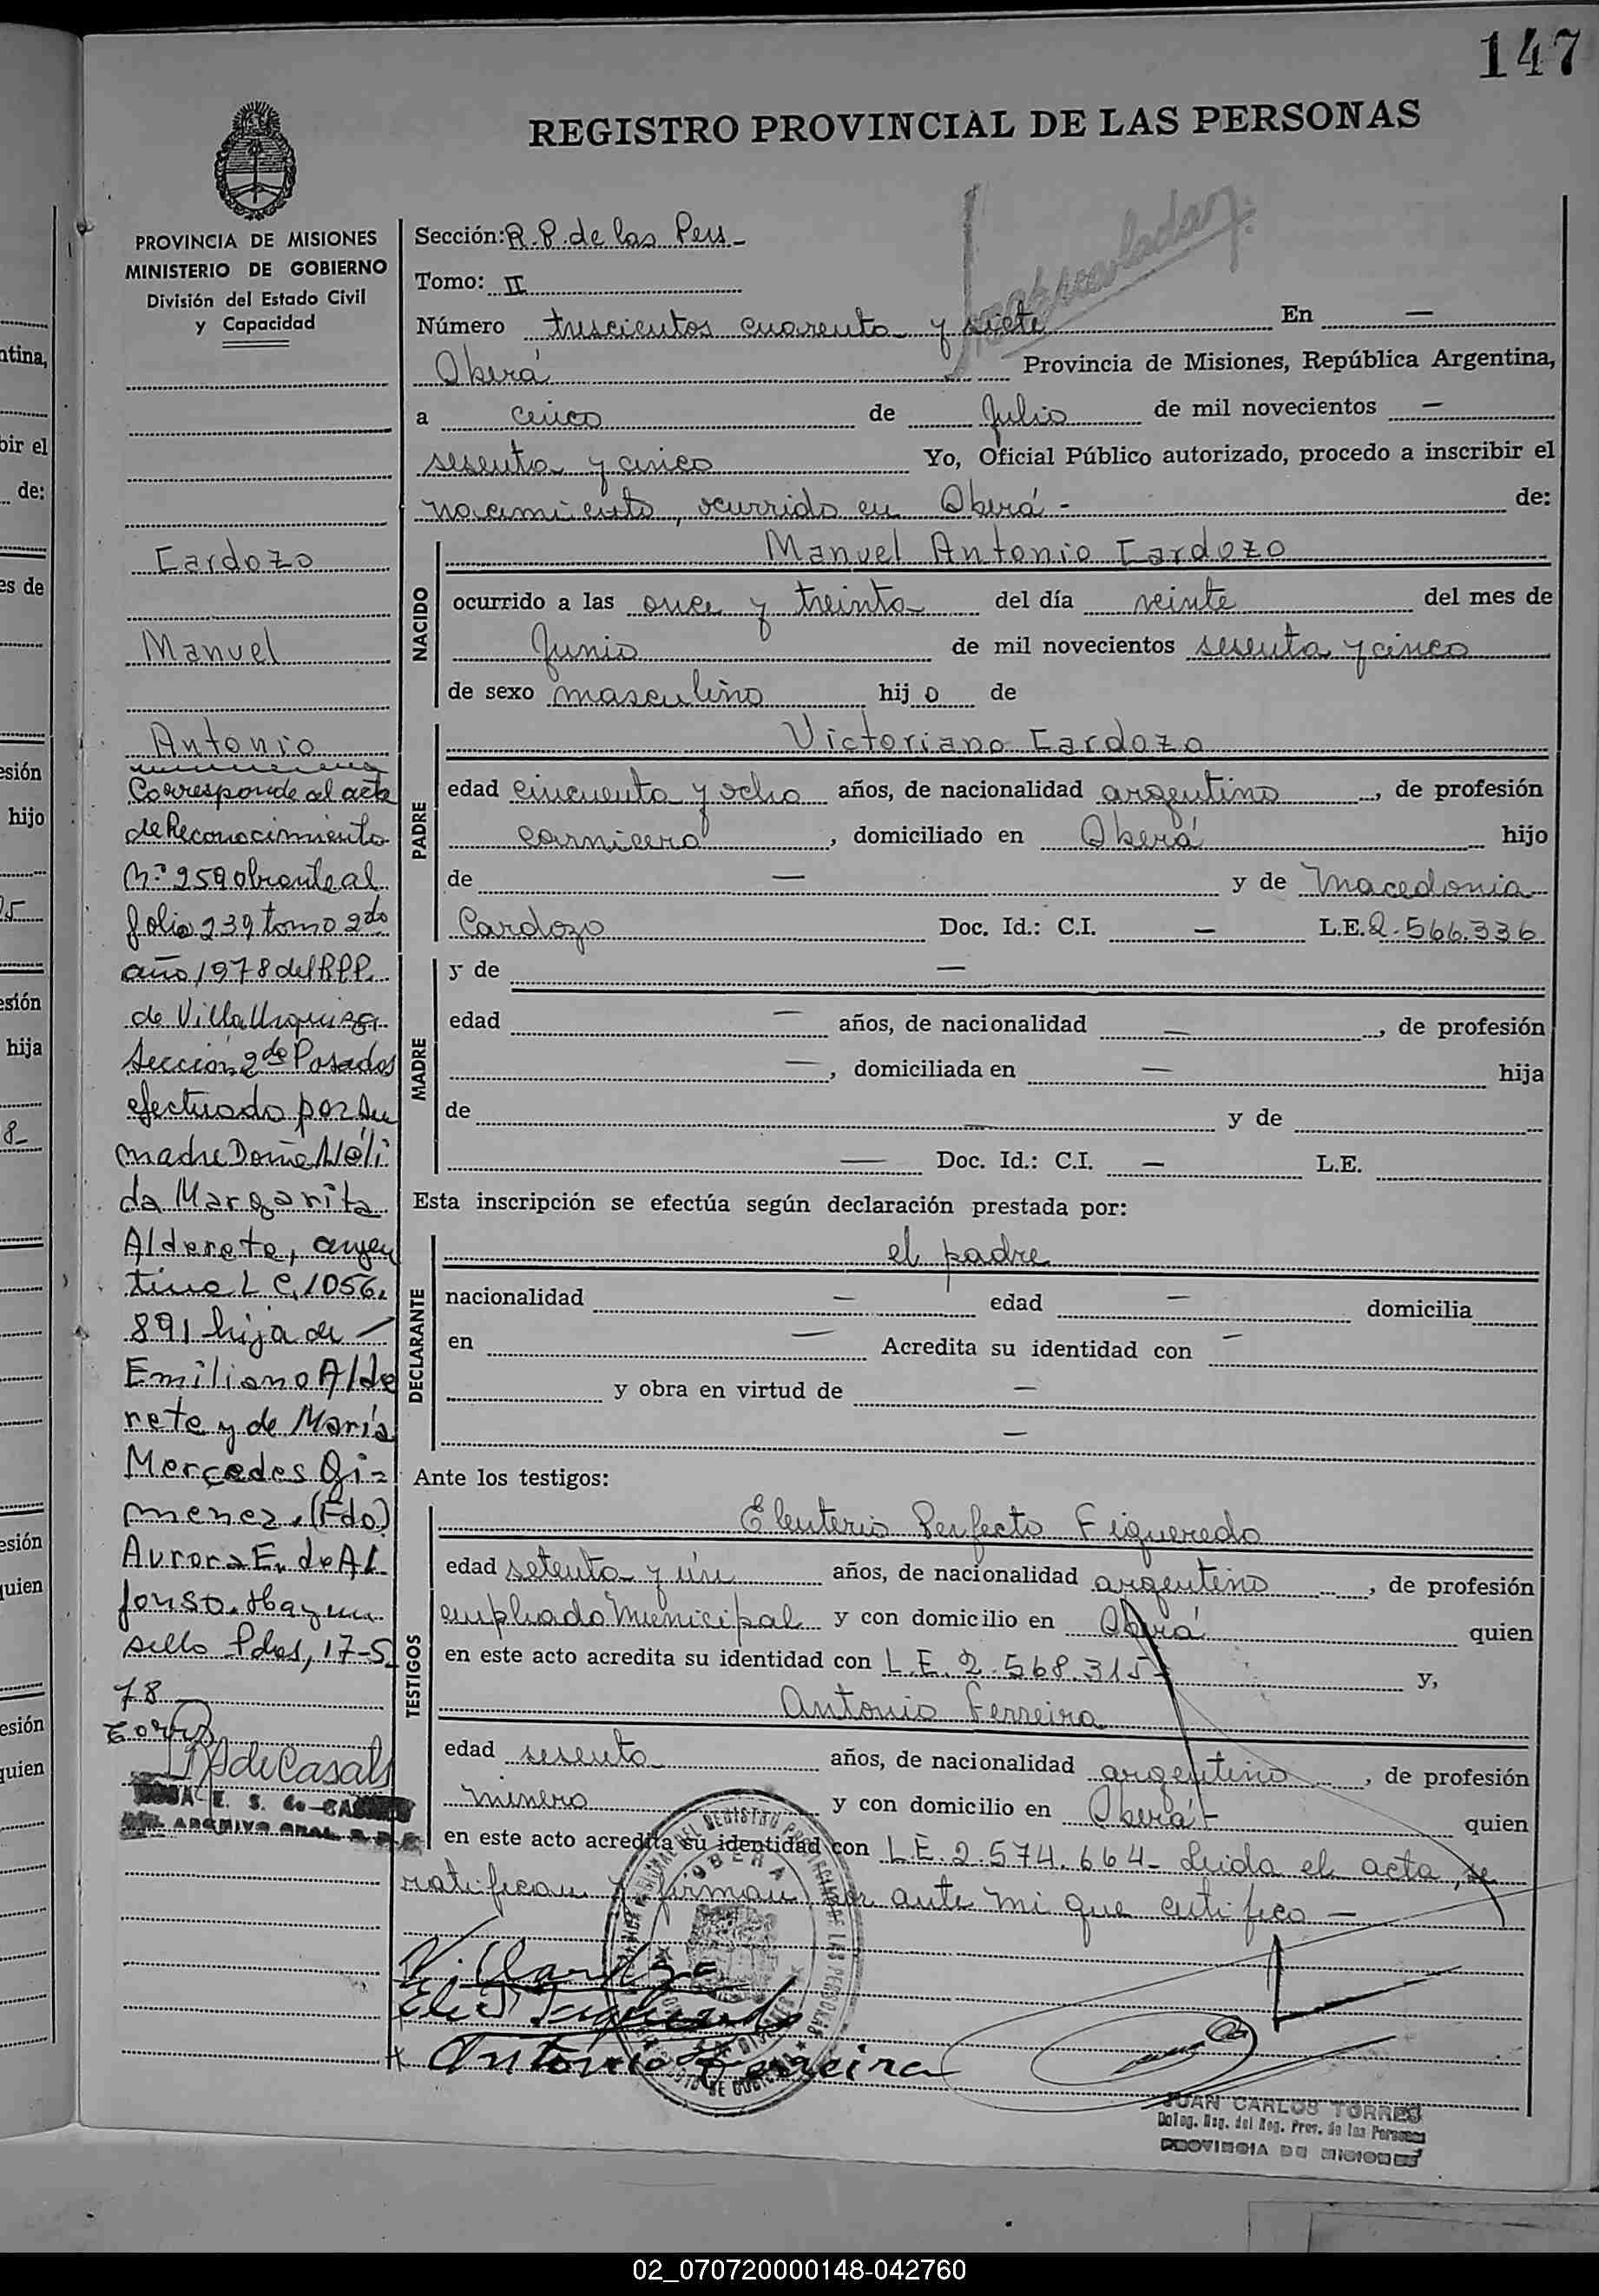 147
REGISTRO PROVINCIAL DE LAS PERSONAS
PROVINCIA DE MISIONES
MINISTERIO DE GOBIERNO
División del Estado Civil
y Capacidad
Cardozo
Manuel
Antonio
Corresponde al acta
de Reconocimiento
N:° 259 obrante al
folio 239 tomo 2do
año 1978 del R.P.P.
de Villa Urquiza
Sección 2da Posadas
efectuado por su
madre Doña Néli
da Margarita
Alderete, argen
tina L C. 1056.
891 hija de
Emiliano Alde
rete y de María
Mercedes Gi=
menez. (Fdo)
Aurora E. de Al
fonso. Hay un
sello Pdas, 17-5
78
de Casals
E. S. de CASALS
ARCHIVO GRAL. R.P.P.
Sección: R.P. de las Pers-
Tomo: II
Número trescientos cuarenta y siete En —
Oberá Provincia de Misiones, República Argentina,
a cinco de Julio de mil novecientos —
sesenta y cinco Yo, Oficial Público autorizado, procedo a inscribir el
nacimiento, ocurrido en Oberá - de:
NACIDO
Manuel Antonio Cardozo
ocurrido a las once y treinta del día veinte del mes de
Junio de mil novecientos sesenta y cinco
de sexo masculino hijo de
PADRE
Victoriano Cardozo
edad cincuenta y ocho años, de nacionalidad argentino, de profesión
carnicero, domiciliado en Oberá hijo
de — y de Macedonia
Cardozo Doc. Id.: C.I. — L.E. 2.566.336
MADRE
y de —
edad — años, de nacionalidad —, de profesión
—, domiciliada en — hija
de — y de
— Doc. Id.: C.I. — L.E.
Esta inscripción se efectúa según declaración prestada por:
DECLARANTE
el padre
nacionalidad — edad — domicilia
en — Acredita su identidad con —
y obra en virtud de —
—
Ante los testigos:
TESTIGOS
Eleuterio Perfecto Figueredo
edad setenta y un años, de nacionalidad argentino, de profesión
empleado Municipal y con domicilio en Oberá quien
en este acto acredita su identidad con L.E. 2.568.315- y,
Antonio Ferreira
edad sesenta años, de nacionalidad argentino, de profesión
minero y con domicilio en Oberá- quien
en este acto acredita su identidad con L.E. 2.574.664- Leida el acta, se
ratifican y firman por ante mi que certifico —
OBERA
Antonio Ferreira
JUAN CARLOS TORRES
Deleg. Reg. del Reg. Prov. de las Personas
PROVINCIA DE MISIONES
ntina,
bir el
de:
es de
esión
hijo
esión
hija
8-
esión
quien
esión
quien
02_070720000148-042760